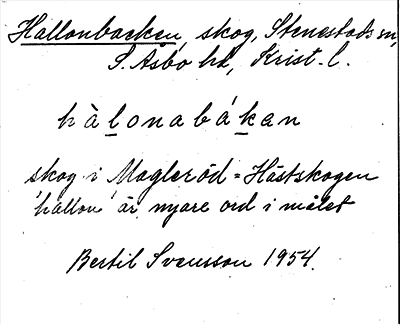 Hallonbacken, skog, Stenestads sn,
S. Åsbo hd, Krist. l.
hàlonabákan
skog i Magleröd = Hästskogen
'hallon' är nyare ord i målet
Bertil Svensson 1954.